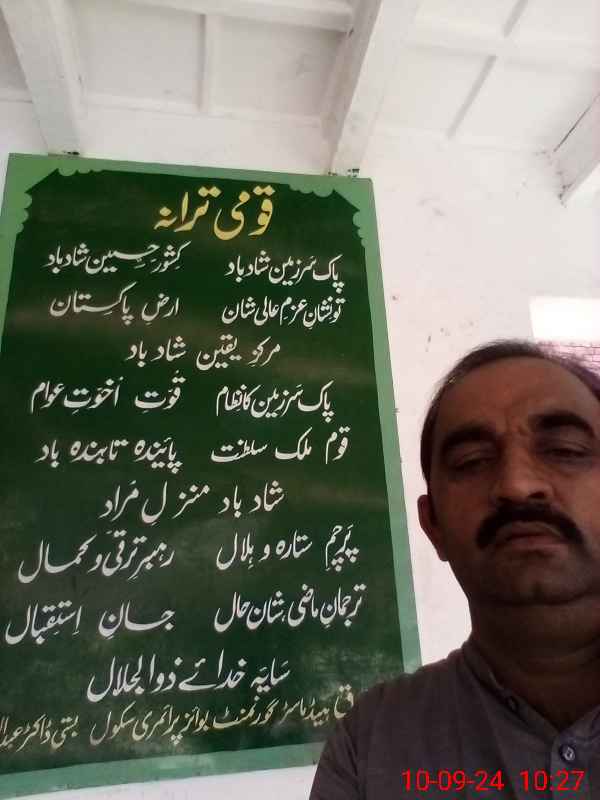 قومی ترانہ
پاک سرزمین شاد باد کشورِ حسین شاد باد
تو نشانِ عزمِ عالی شان ارضِ پاکستان
مرکزِ یقین شاد باد
پاک سرزمین کا نظام قوّتِ اُخوّتِ عوام
قوم ملک سلطنت پائیندہ تابندہ باد
شاد باد منزلِ مُراد
پرچمِ ستارہ و ہلال رہبرِ ترقّی و کمال
ترجمانِ ماضی شانِ حال جانِ اِستقبال
سایۂ خدائے ذوالجلال
ہیڈ ماسٹر گورنمنٹ بوائز پرائمری سکول بستی ڈاکٹر
10-09-24 10:27